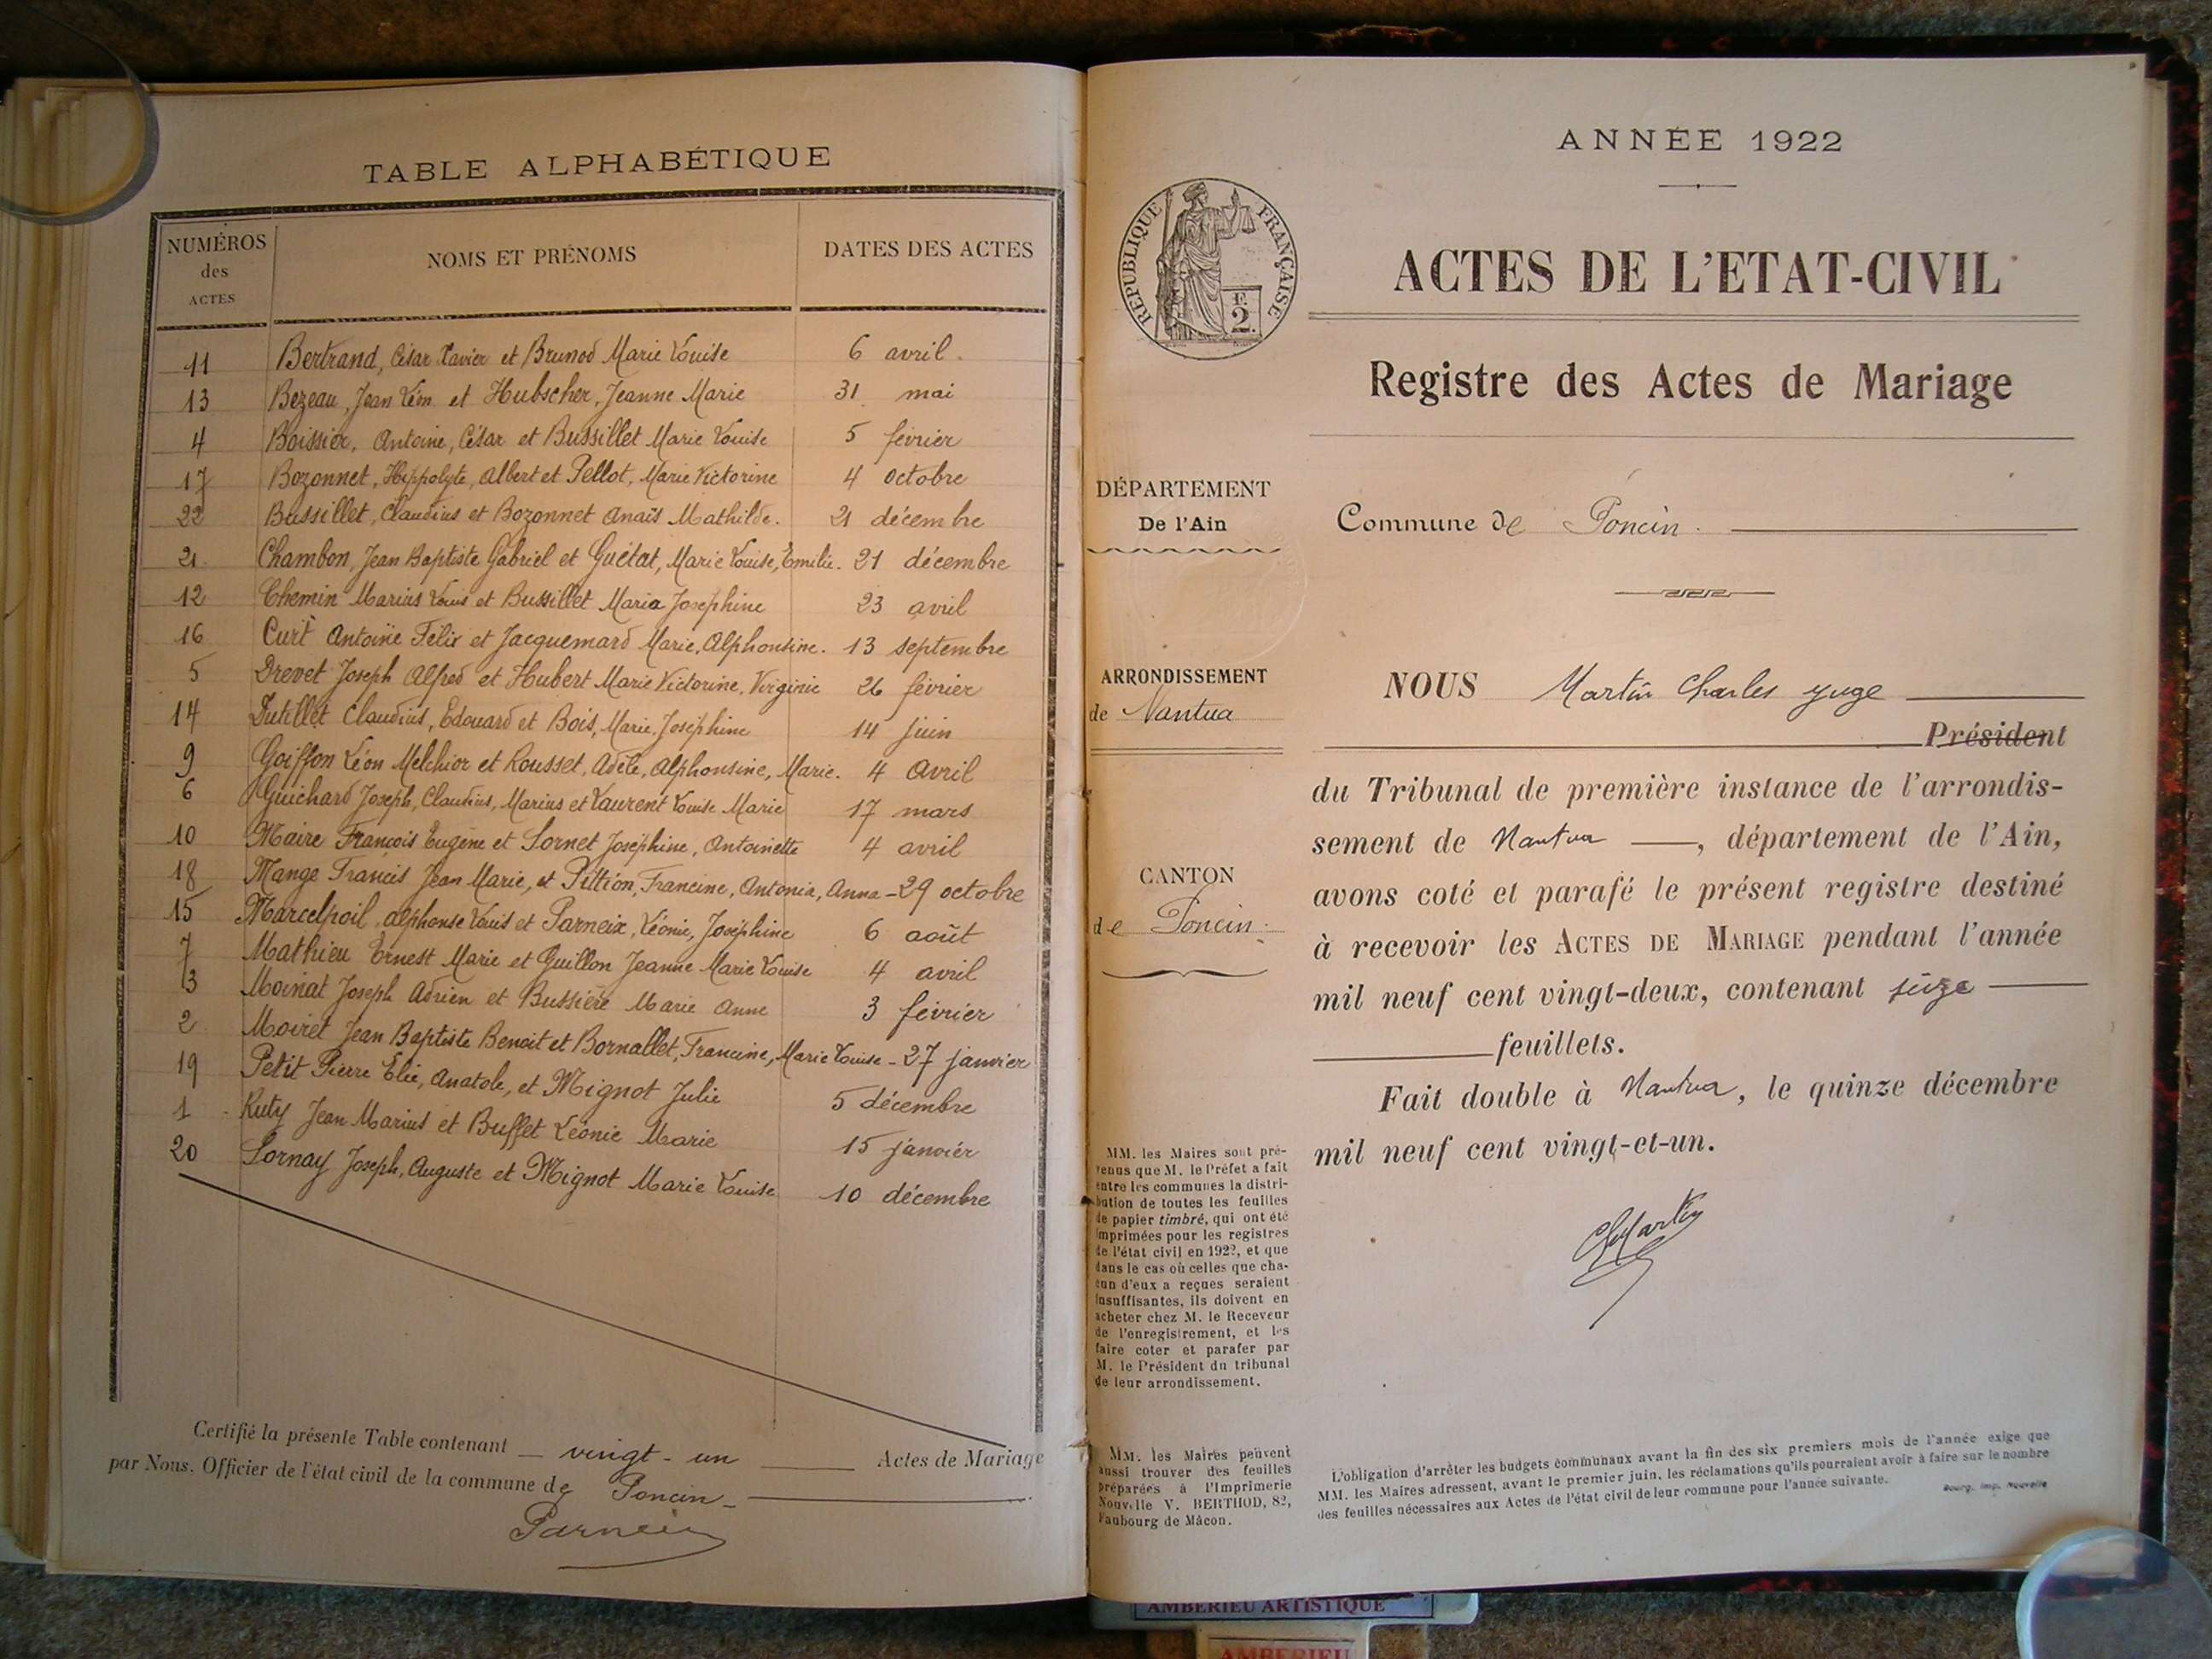 TABLE ALPHABÉTIQUE
NUMÉROS
des
ACTES
NOMS ET PRÉNOMS
DATES DES ACTES
11 Bertrand, César Xavier et Brunod Marie Louise 6 avril.
13 Bezeau, Jean Léon et Hubscher, Jeanne Marie 31 mai
4 Boissier, Antoine, César et Bussillet Marie Louise 5 février
17 Bozonnet, Hippolyte, Albert et Pellot, Marie Victorine 4 octobre
22 Bussillet, Claudius et Bozonnet Anaïs Mathilde. 21 décembre
21 Chambon, Jean Baptiste Gabriel et Guétat, Marie Louise, Emilie. 21 décembre
12 Chemin Marius Louis et Bussillet Maria Josephine 23 avril
16 Curt Antoine Félix et Jacquemard Marie, Alphonsine. 13 septembre
5 Drevet Joseph Alfred et Hubert Marie Victorine, Virginie 26 février
14 Dutillet Claudius, Edouard et Bois, Marie, Joséphine 14 juin
9 Goiffon Léon Melchior et Rousset, Adèle, Alphonsine, Marie. 4 Avril
6 Guichard Joseph, Claudius, Marius et Laurent Louise Marie 17 mars
10 Maire François Eugène et Sornet Joséphine, Antoinette 4 avril
18 Mange Francis Jean Marie, et Pittion, Francine, Antonia, Anna - 29 octobre
15 Marcelpoil, Alphonse Louis et Parneix, Léonie, Joséphine 6 août
7 Mathieu Ernest Marie et Guillon Jeanne Marie Louise 4 avril
3 Moinat Joseph Adrien et Bussière Marie Anne 3 février
2 Moiret Jean Baptiste Benoit et Bornallet, Francine, Marie Louise - 27 janvier
19 Petit Pierre Elie, Anatole, et Mignot Julie 5 décembre
1 Ruty Jean Marius et Buffet Léonie Marie 15 janvier
20 Sornay Joseph, Auguste et Mignot Marie Louise 10 décembre
Certifié la présente Table contenant — vingt - un Actes de Mariage
par Nous, Officier de l'état civil de la commune de Poncin -
Parneix
ANNÉE 1922
RÉPUBLIQUE FRANÇAISE
E.
2.
ACTES DE L'ETAT-CIVIL
Registre des Actes de Mariage
DÉPARTEMENT
De l'Ain
Commune de Poncin.
ARRONDISSEMENT
de Nantua
CANTON
de Poncin.
NOUS Martin Charles juge
Président
du Tribunal de première instance de l'arrondis-
sement de Nantua, département de l'Ain,
avons coté et parafé le présent registre destiné
à recevoir les ACTES DE MARIAGE pendant l'année
mil neuf cent vingt-deux, contenant seize
feuillets.
Fait double à Nantua, le quinze décembre
mil neuf cent vingt-et-un.
ChMartin
MM. les Maires sont pré-
venus que M. le Préfet a fait
entre les communes la distri-
bution de toutes les feuilles
de papier timbré, qui ont été
imprimées pour les registres
de l'état civil en 1922, et que
dans le cas où celles que cha-
cun d'eux a reçues seraient
insuffisantes, ils doivent en
acheter chez M. le Receveur
de l'enregistrement, et les
faire coter et parafer par
M. le Président du tribunal
de leur arrondissement.
MM. les Maires peuvent
aussi trouver des feuilles
préparées à l'Imprimerie
Nouvelle V. BERTHOD, 82,
Faubourg de Mâcon.
L'obligation d'arrêter les budgets communaux avant la fin des six premiers mois de l'année exige que
MM. les Maires adressent, avant le premier juin, les réclamations qu'ils pourraient avoir à faire sur le nombre
des feuilles nécessaires aux Actes de l'état civil de leur commune pour l'année suivante.
Bourg, Imp. Nouvelle
AMBERIEU ARTISTIQUE
AMBERIEU